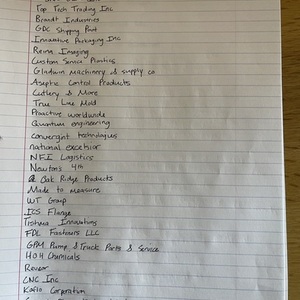 Top Tech Trading Inc
Brandt Industries
GDC Shipping Port
Innovative Packaging Inc
Reina Imaging
Custom Service Plastics
Gladwin Machinery & supply co
Aseptic Control Products
Cutlery & More
True Line Mold
Proactive worldwide
Quantum engineering
convergint technologies
national excelsior
NFI Logistics
Newton's 4th
Oak Ridge Products
Made to measure
WT Group
ICS Flange
Tishma Innovations
FDL Fasteners LLC
GPM Pump & Truck Parts & Service
HOH Chemicals
Rexcor
CNC Inc
Corporation